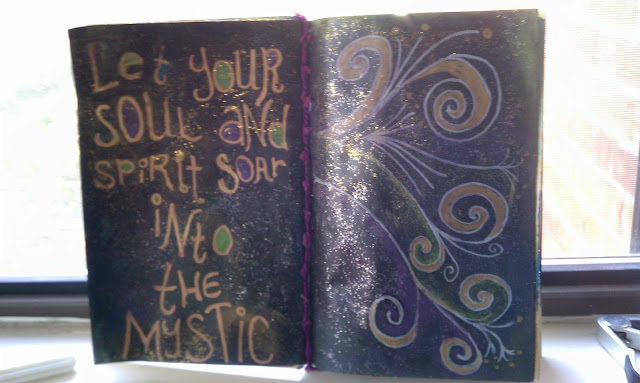 Let YOUR
SOUL and
SPiRit SOar
iNtO
tHE
MYStiC